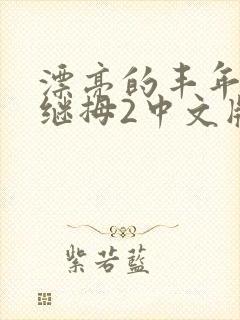 漂亮的丰年
继拇2中文版
紫若蓝